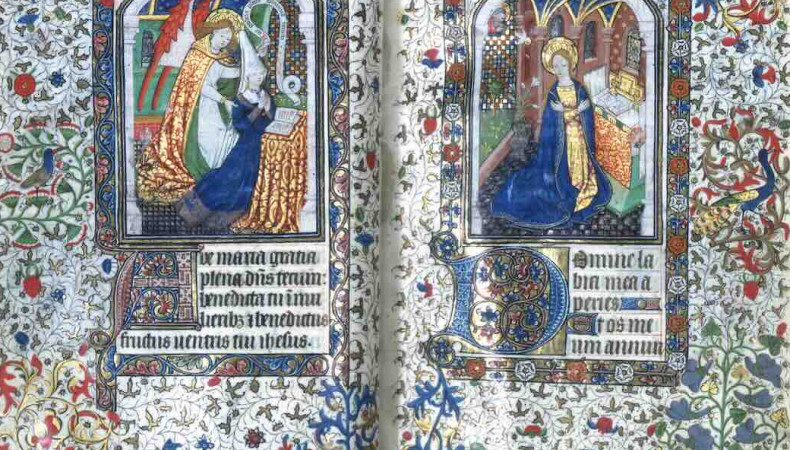 Ave maria gratia
plena dn̄s tecum
benedicta tu ī mu
lierib⁊ ⁊ benedictus
fructus uentris tui ihesus.
Domine la
bia mea a
peries
Et os me
um annun